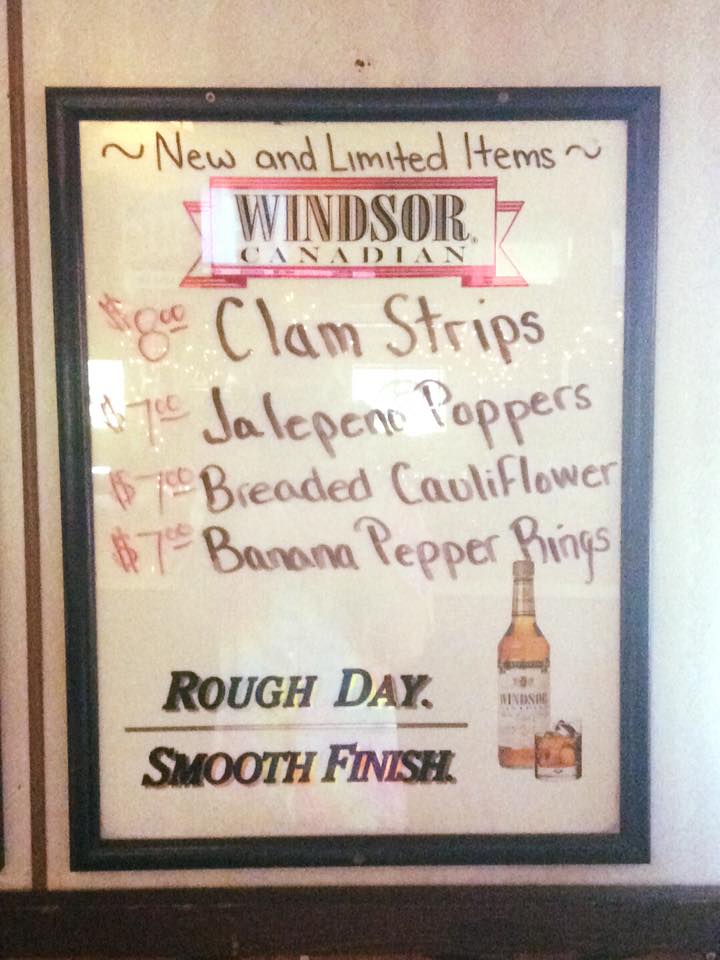 ~ New and Limited Items ~
WINDSOR®
CANADIAN
$8.00 Clam Strips
$7.00 Jalepeno Poppers
$7.00 Breaded Cauliflower
$7.00 Banana Pepper Rings
ROUGH DAY.
SMOOTH FINISH.
WINDSOR